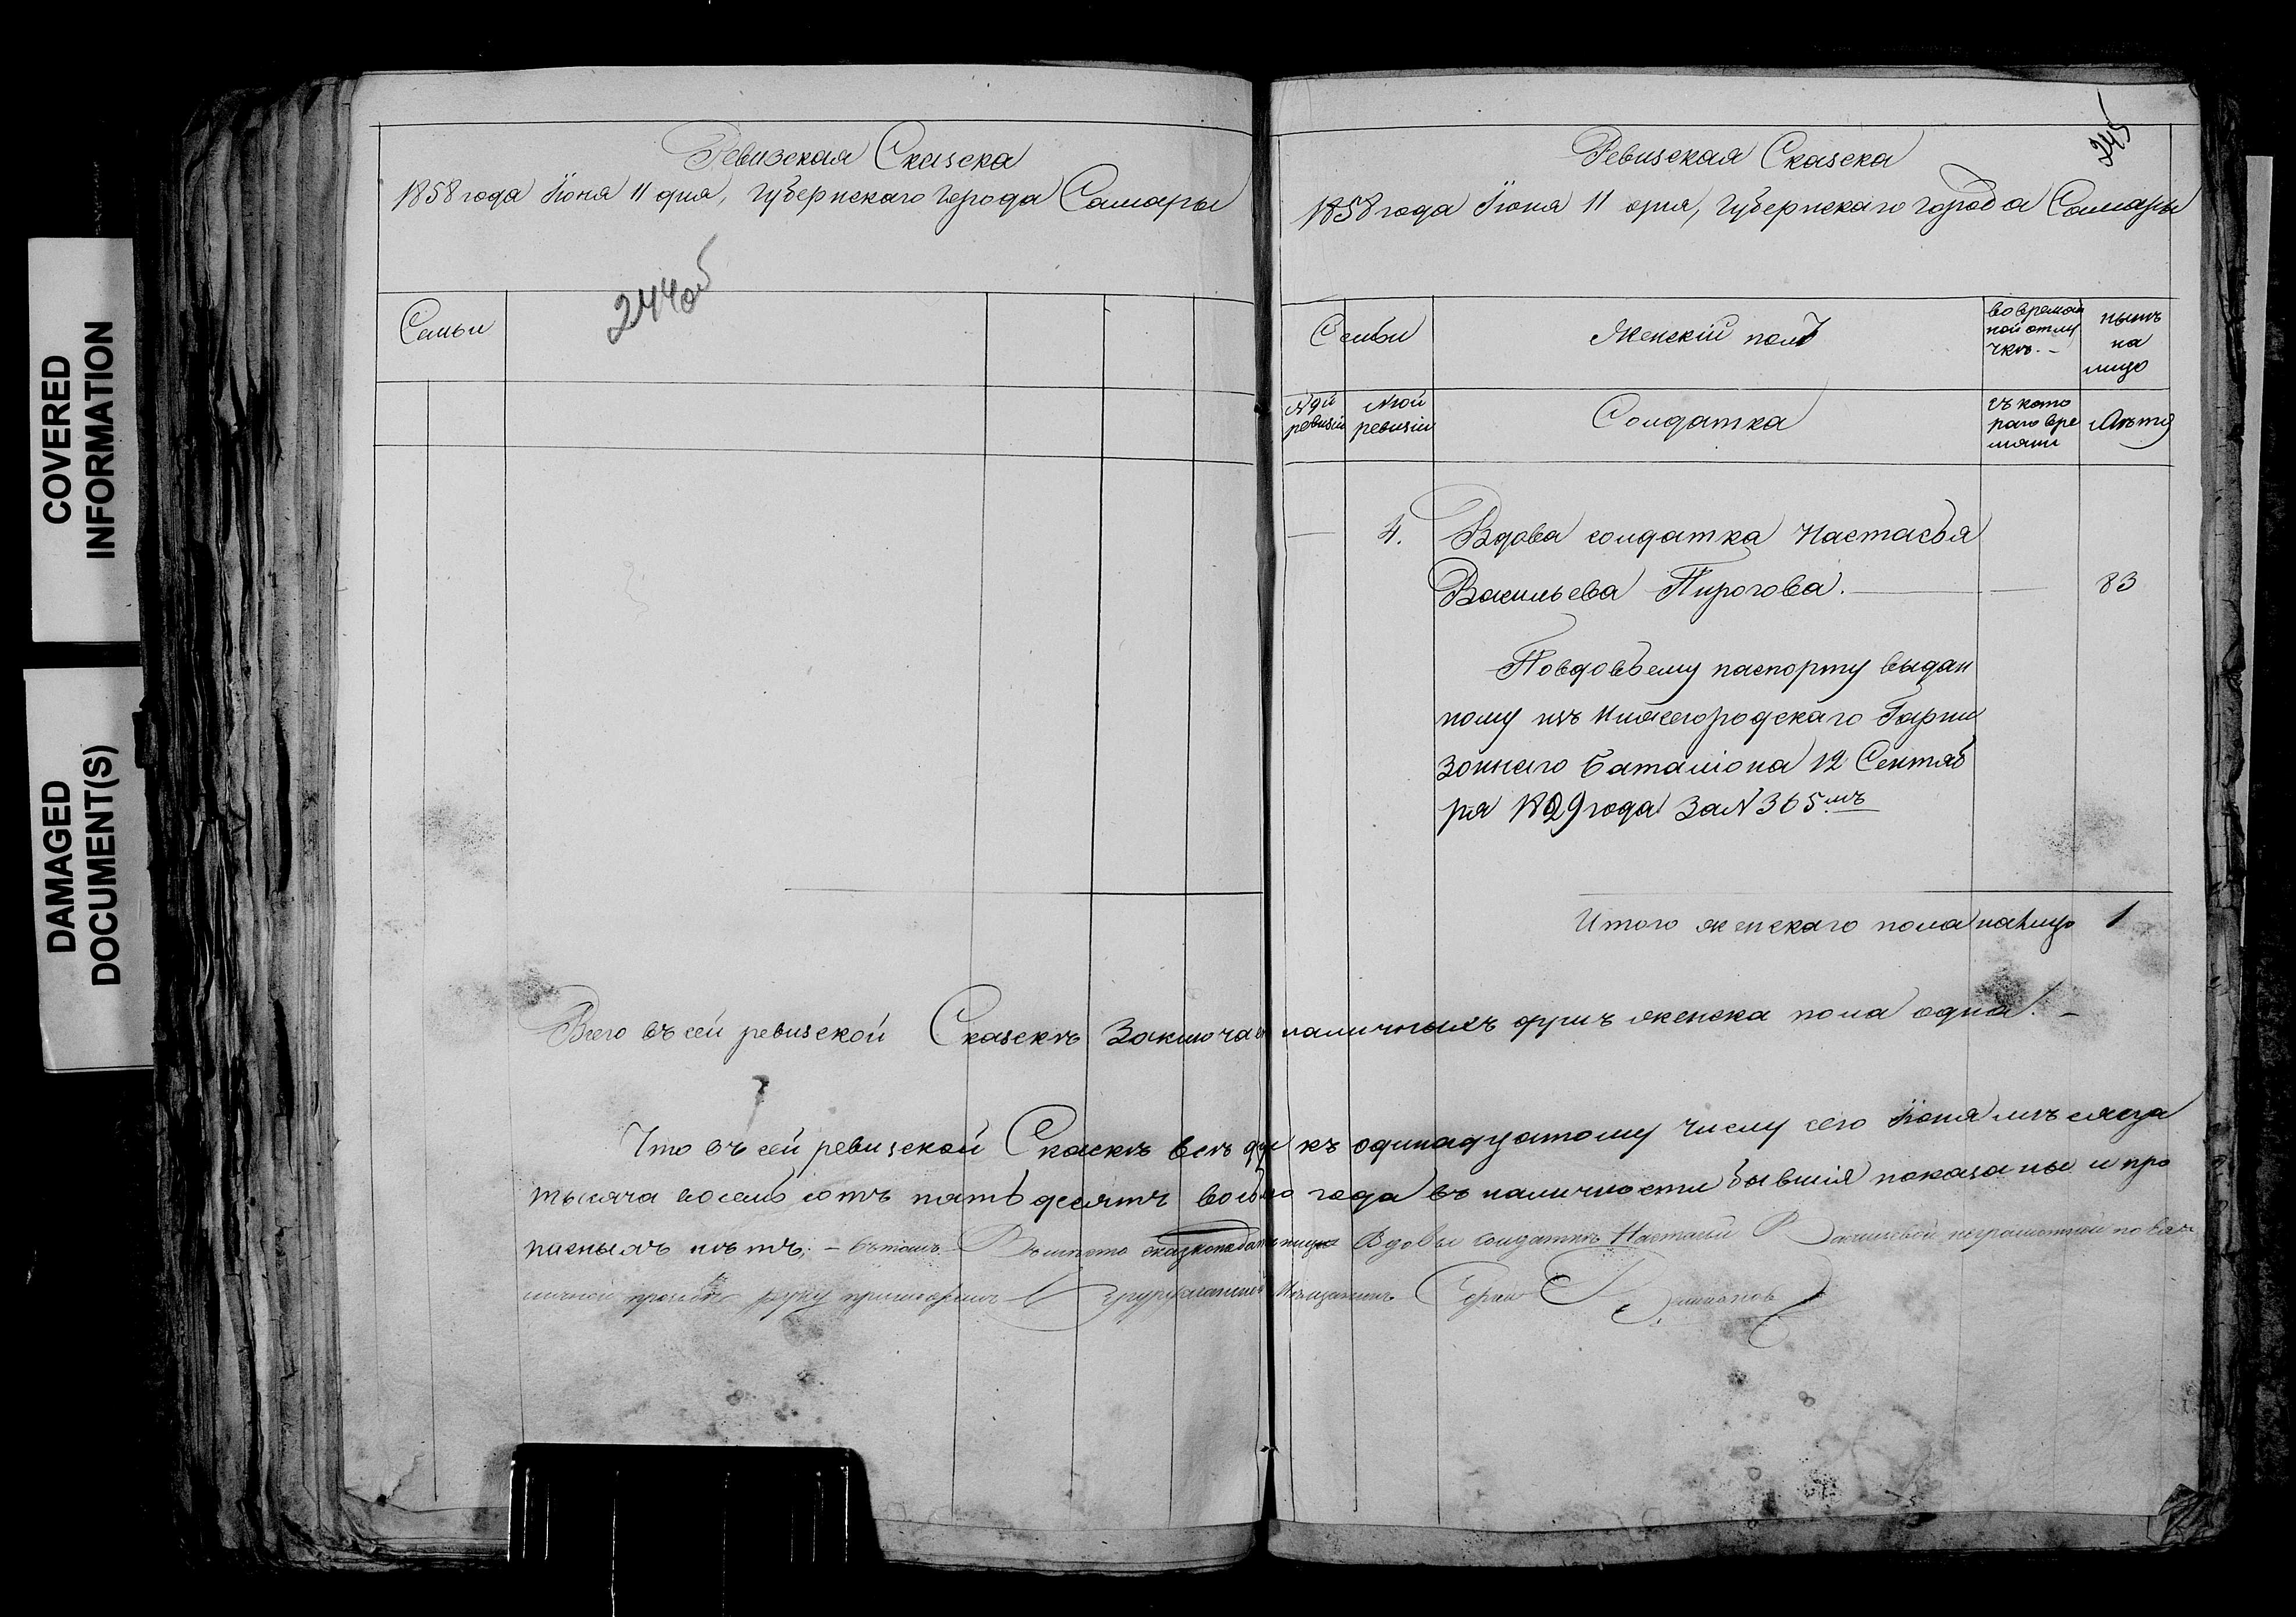 COVERED
INFORMATION
DAMAGED
DOCUMENT(S)
Ревизская Сказска
1858 года Іюня 11 дня, Губернскаго города Самары
244об
Семьи
245
Ревизская Сказска
1858 года Іюня 11 дня, Губернскаго города Самары
Семьи
Женскій полъ
во времян
ной отлу
чкѣ. –
нынѣ
на
лицо
№ 9й
ревизіи
№ 10й
ревизіи
Солдатка
съ кото
раго вре
мяни
Лѣта
— 4. Вдова солдатка Настасья
Васильева Пирогова. — — 83
Повдовьему паспорту выдан
ному изъ Нижегородскаго Гарни
зоннаго Баталіона 12 Сентяб
ря 1829 года За № 365мъ
Итого женскаго пола налицо 1
Всего въ сей ревизской Сказскѣ Заключае наличныхъ душъ женска пола одна. –
Что въ сей ревизской Скаскѣ всѣ ду къ одинадцатому числу сего Іюня мѣсяца
тысяча восемь сотъ пятьдесятъ восмо года въ наличности бывшія показаны и про
писныхъ нѣтъ. – въ томъ Вместо Вдовы солдатки Настасьи Васильевой неграмотной по ея
личной прозьбе руку приложилъ Мещанинъ